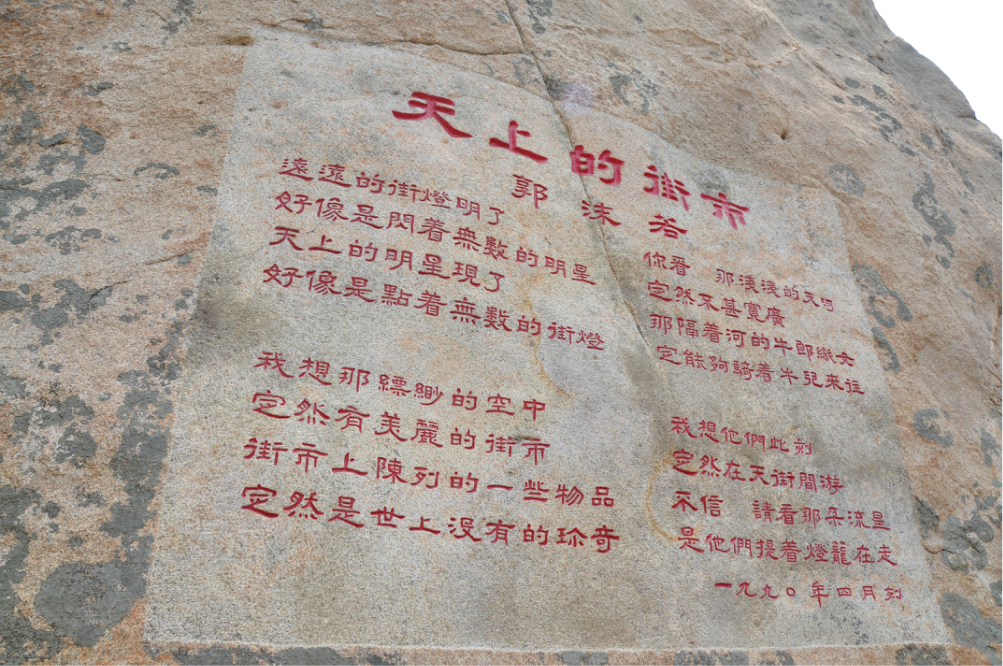 天上的街市
郭沫若
遠遠的街燈明了
好像是閃着無數的明星
天上的明星現了
好像是點着無數的街燈
我想那縹緲的空中
定然有美麗的街市
街市上陳列的一些物品
定然是世上沒有的珍奇
你看 那淺淺的天河
定然不甚寬廣
那隔着河的牛郎織女
定能夠騎着牛兒來往
我想他們此刻
定然在天街閒游
不信 請看那朵流星
是他們提着燈籠在走
一九九〇年四月刻